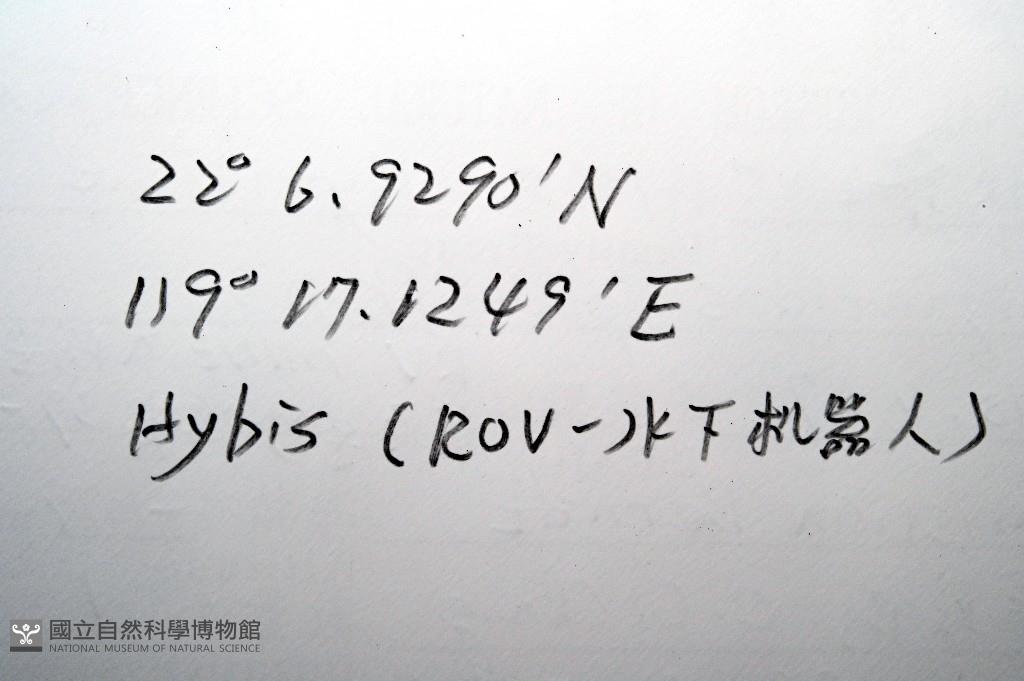 22° 6.9290'N
119° 17.1249'E
Hybis (ROV-水下机器人)
國立自然科學博物館
NATIONAL MUSEUM OF NATURAL SCIENCE